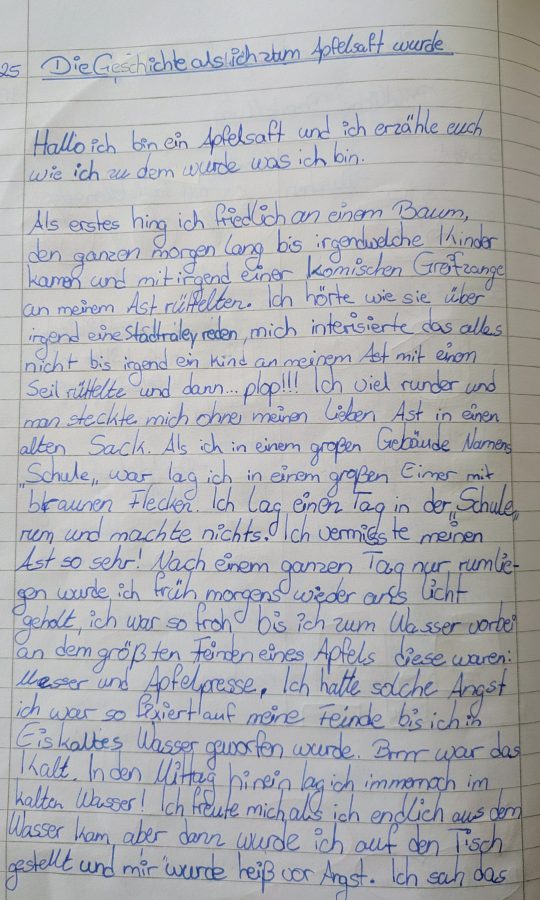 25 Die Geschichte als ich zum Apfelsaft wurde
Hallo ich bin ein Apfelsaft und ich erzähle euch
wie ich zu dem wurde was ich bin.
Als erstes hing ich friedlich an einem Baum,
den ganzen morgen lang bis irgendwelche Kinder
kamen und mit irgend einer komischen Greifzange
an meinem Ast rüttelten. Ich hörte wie sie über
irgend eine Stadtraley reden, mich interisierte das alles
nicht bis irgend ein Kind an meinem Ast mit einem
Seil rüttelte und dann... plop!!! Ich viel runder und
man steckte mich ohne meinen lieben Ast in einen
alten Sack. Als ich in einem großen Gebäude Namens
„Schule„ war, lag ich in einem großen Eimer mit
braunen Flecken. Ich lag einen Tag in der „Schule„
rum und machte nichts. Ich vermisste meinen
Ast so sehr! Nach einem ganzen Tag nur rumlie-
gen wurde ich früh morgens wieder aufs licht
geholt, ich war so froh bis ich zum Wasser vorbei
an dem größten Feinden eines Apfels diese waren:
Messer und Apfelpresse. Ich hatte solche Angst
ich war so fixiert auf meine Feinde bis ich in
Eiskaltes Wasser geworfen wurde. Brrr war das
Kalt. In den Mittag hinein lag ich immernoch im
kalten Wasser! Ich freute mich als ich endlich aus dem
Wasser kam, aber dann wurde ich auf den Tisch
gestellt und mir wurde heiß vor Angst. Ich sah das